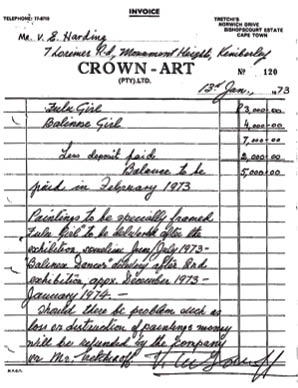 INVOICE
TELEPHONE: 77-8710
TRETCHI'S
NORWICH DRIVE
BISHOPSCOURT ESTATE
CAPE TOWN
Mr. V. E. Harding
7 Lorimer Rd, Monument Heights, Kimberley
CROWN-ART
(PTY) LTD.
No 120
13th Jan, 1973
Zulu Girl R3,000.00
Balinese Girl 4,000.00
7,000.00
Less deposit paid 2,000.00
Balance to be 5,000.00
paid in February 1973
Paintings to be specially framed
Zulu Girl to be delivered after the
exhibition, sometime June/July 1973-
"Balinese Dancer" delivery after
exhibition, appx. December 1973-
January 1974-
Should there be problem such as
loss or distruction of paintings money
will be refunded by the Company
or Mr. Tretchikoff